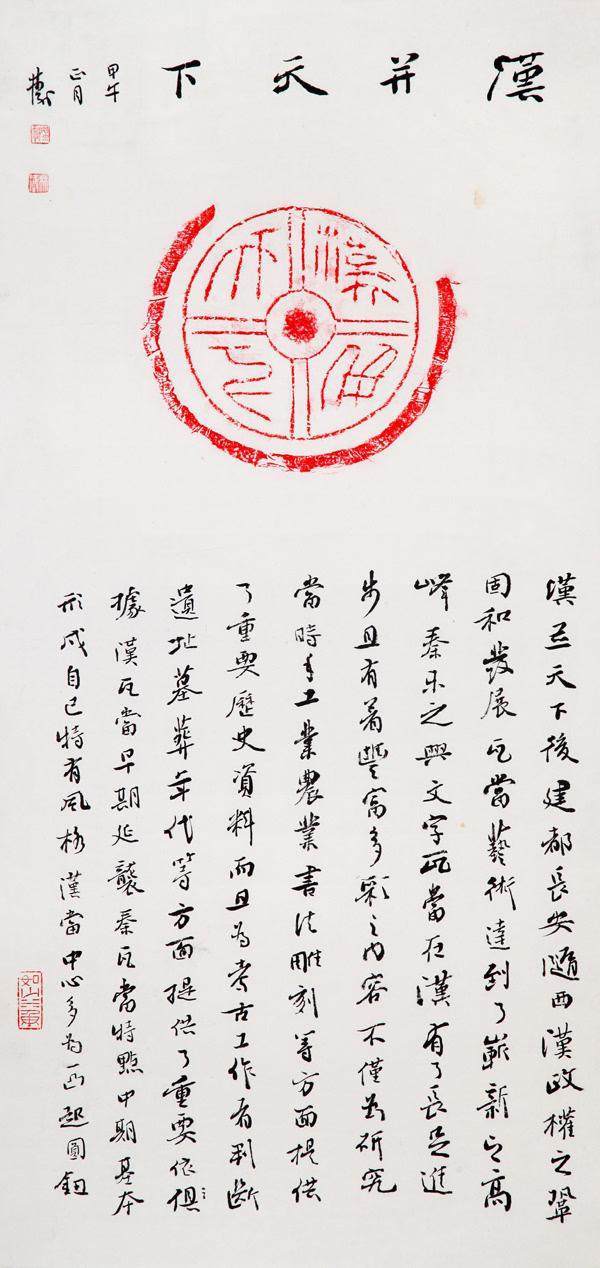 漢并天下
甲午
正月
漢并天下
漢並天下後建都長安隨西漢政權之鞏
固和發展瓦當藝術達到了嶄新之高
峰秦末之興文字瓦當在漢有了長足進
步且有着豐富多彩之內容不僅為研究
當時手工業農業書法雕刻等方面提供
了重要歷史資料而且為考古工作者判斷
遺址墓葬年代等方面提供了重要依據
據漢瓦當早期延襲秦瓦當特點中期基本
形成自己特有風格漢當中心多為凸起圓鈕